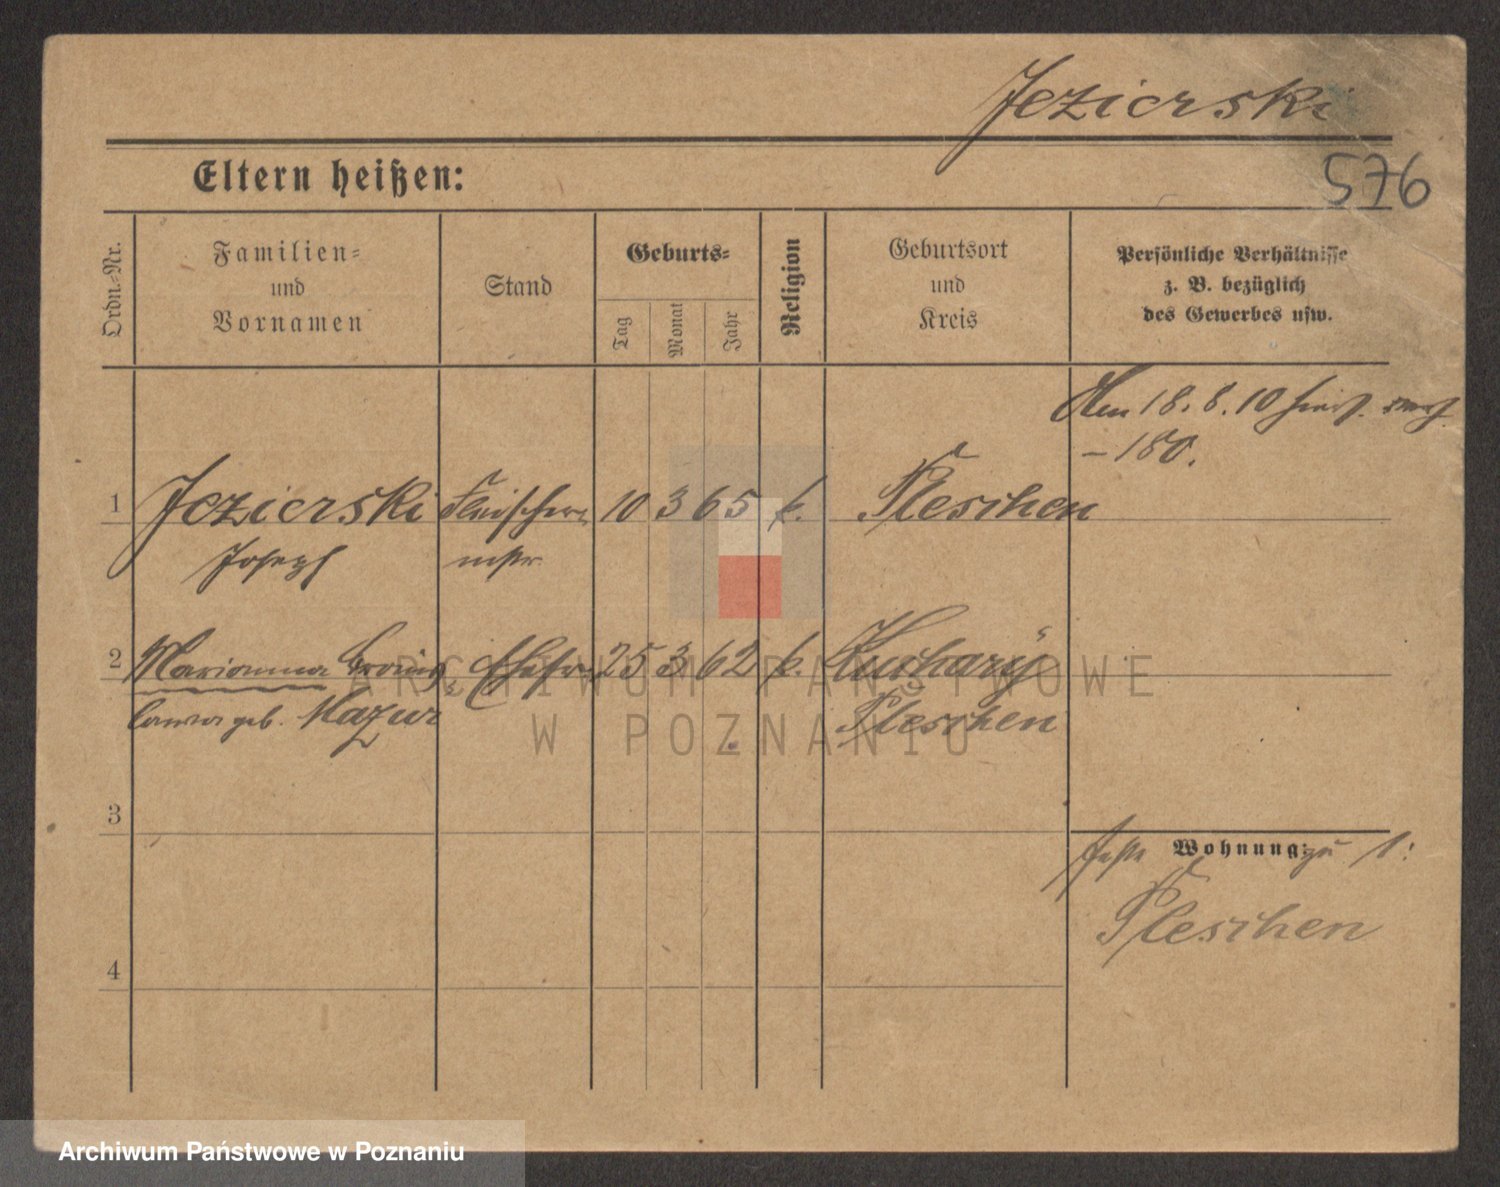 Jezierski
576
Eltern heißen:
Ordn.-Nr.
Familien-
und
Vornamen
Stand
Geburts-
Tag
Monat
Jahr
Religion
Geburtsort
und
Kreis
Persönliche Verhältnisse
z. B. bezüglich
des Gewerbes usw.
18. 8. 10
– 180.
1 Jezierski Fleischer- 10 3 65 k. Pleschen
Joseph mstr.
2 Marianna Ehefr. 25 3 62 k. Kuchary
geb. Mazur Pleschen
3
feste Wohnung: zu 1:
Pleschen
4
ARCHIWUM PAŃSTWOWE
W POZNANIU
Archiwum Państwowe w Poznaniu